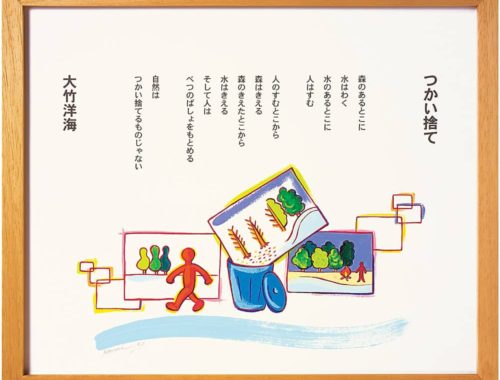 つかい捨て
森のあるとこに
水はわく
水のあるとこに
人はすむ
人のすむとこから
森はきえる
森のきえたとこから
水はきえる
そして人は
べつのばしょをもとめる
自然は
つかい捨てるものじゃない
大竹洋海